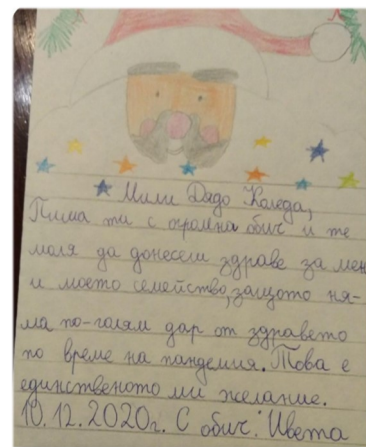 Мили Дядо Коледа,
Пиша ти с огромна обич и те
моля да донесеш здраве за мен
и моето семейство, защото ня-
ма по-голям дар от здравето
по време на пандемия. Това е
единственото ми желание.
10.12.2020г. С обич: Цвета